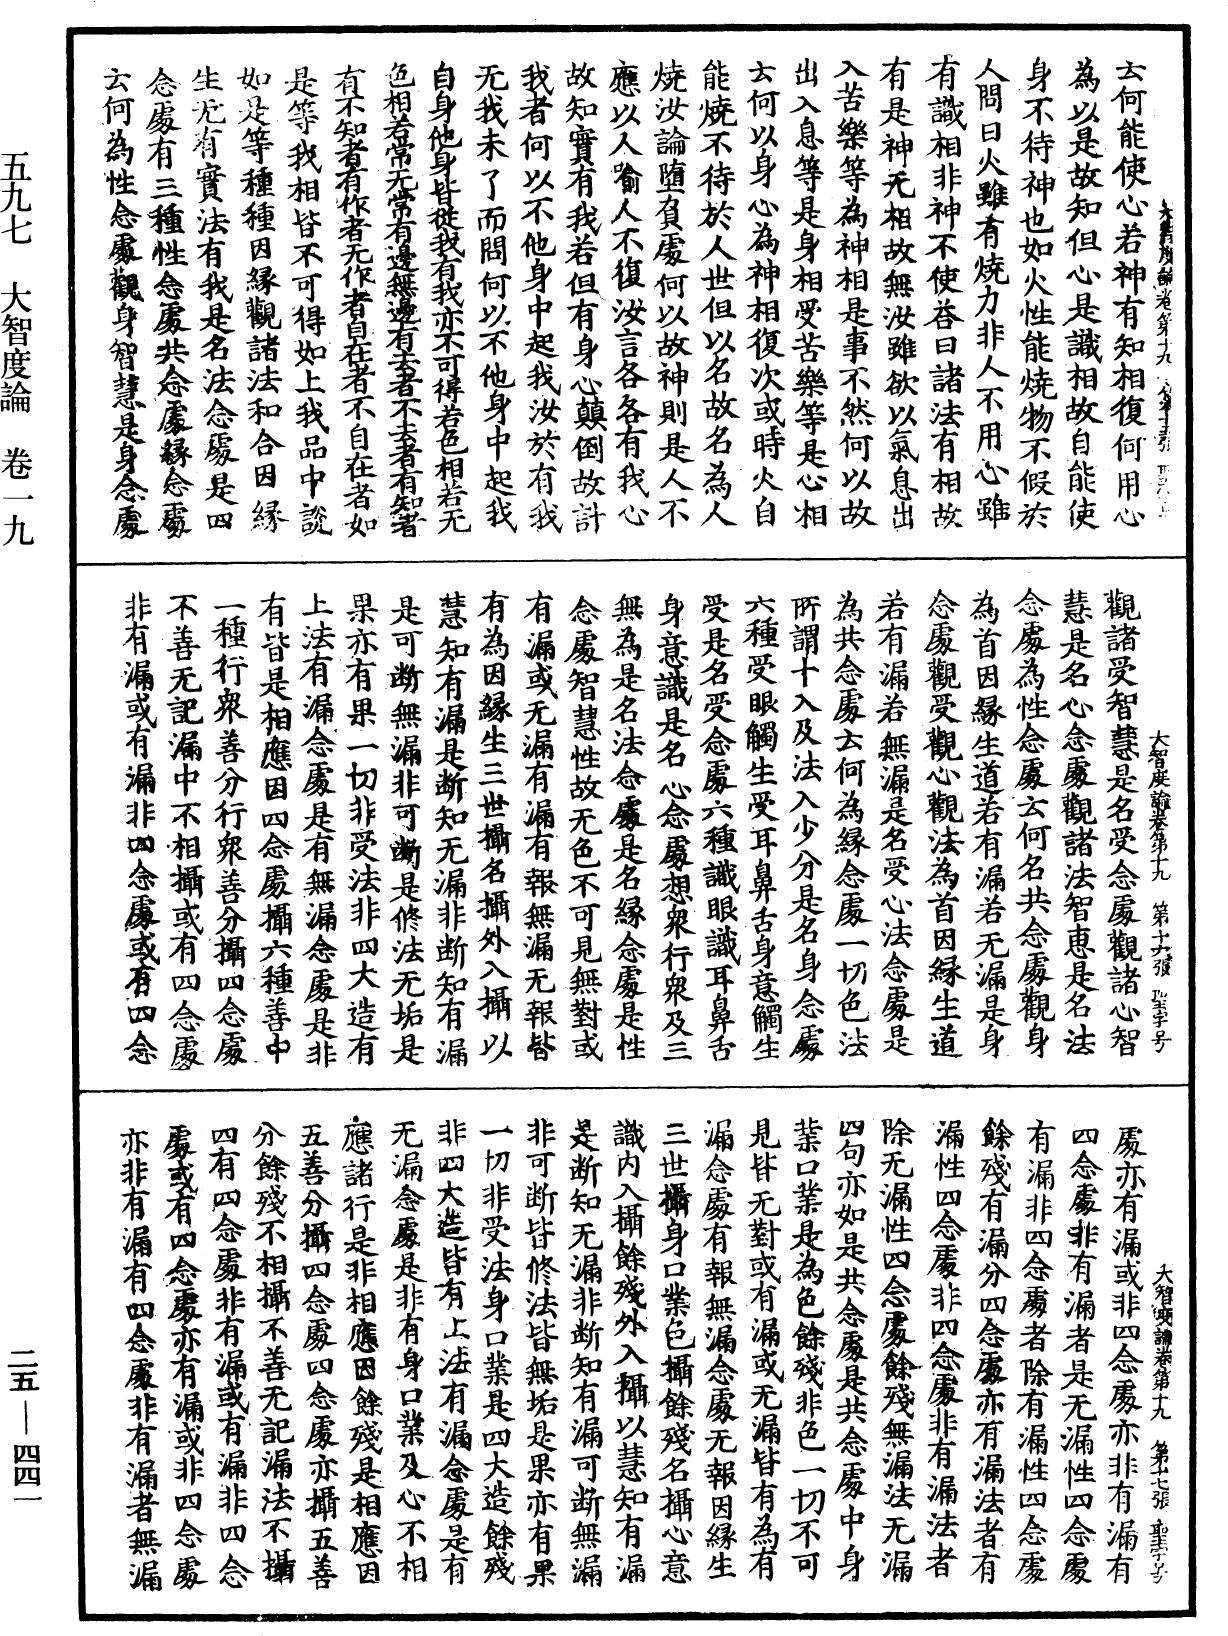 五九七　大智度論　卷一九
二五—四四一
云何能使心若神有知相復何用心
為以是故知但心是識相故自能使
身不待神也如火性能燒物不假於
人問曰火雖有燒力非人不用心雖
有識相非神不使荅曰諸法有相故
有是神无相故無汝雖欲以氣息出
入苦樂等為神相是事不然何以故
出入息等是身相受苦樂等是心相
云何以身心為神相復次或時火自
能燒不待於人世但以名故名為人
燒汝論墮負處何以故神則是人不
應以人喻人不復汝言各各有我心
故知實有我若但有身心顛倒故計
我者何以不他身中起我汝於有我
无我未了而問何以不他身中起我
自身他身皆從我有我亦不可得若色相若无
色相若常无常有邊無邊有去者不去者有知者
有不知者有作者无作者自在者不自在者如
是等我相皆不可得如上我品中說
如是等種種因緣觀諸法和合因緣
生无有實法有我是名法念處是四
念處有三種性念處共念處緣念處
云何為性念處觀身智慧是身念處
大智度論卷第十九　第十六張　聖字号
觀諸受智慧是名受念處觀諸心智
慧是名心念處觀諸法智惠是名法
念處為性念處云何名共念處觀身
為首因緣生道若有漏若无漏是身
念處觀受觀心觀法為首因緣生道
若有漏若無漏是名受心法念處是
為共念處云何為緣念處一切色法
所謂十入及法入少分是名身念處
六種受眼觸生受耳鼻舌身意觸生
受是名受念處六種識眼識耳鼻舌
身意識是名心念處想眾行眾及三
無為是名法念處是名緣念處是性
念處智慧性故无色不可見無對或
有漏或无漏有漏有報無漏无報皆
有為因緣生三世攝名攝外入攝以
慧知有漏是断知无漏非断知有漏
是可断無漏非可断是修法无垢是
果亦有果一切非受法非四大造有
上法有漏念處是有無漏念處是非
有皆是相應因四念處攝六種善中
一種行眾善分行眾善分攝四念處
不善无記漏中不相攝或有四念處
非有漏或有漏非四念處或有四念
大智度論卷第十九　第十七張　聖字号
處亦有漏或非四念處亦非有漏有
四念處非有漏者是无漏性四念處
有漏非四念處者除有漏性四念處
餘殘有漏分四念處亦有漏法者有
漏性四念處非四念處非有漏法者
除无漏性四念處餘殘無漏法无漏
四句亦如是共念處是共念處中身
業口業是為色餘殘非色一切不可
見皆无對或有漏或无漏皆有為有
漏念處有報無漏念處无報因緣生
三世攝身口業色攝餘殘名攝心意
識內入攝餘殘外入攝以慧知有漏
是断知无漏非断知有漏可断無漏
非可断皆修法皆無垢是果亦有果
一切非受法身口業是四大造餘殘
非四大造皆有上法有漏念處是有
无漏念處是非有身口業及心不相
應諸行是非相應因餘殘是相應因
五善分攝四念處四念處亦攝五善
分餘殘不相攝不善无記漏法不攝
四有四念處非有漏或有漏非四念
處或有四念處亦有漏或非四念處
亦非有漏有四念處非有漏者無漏